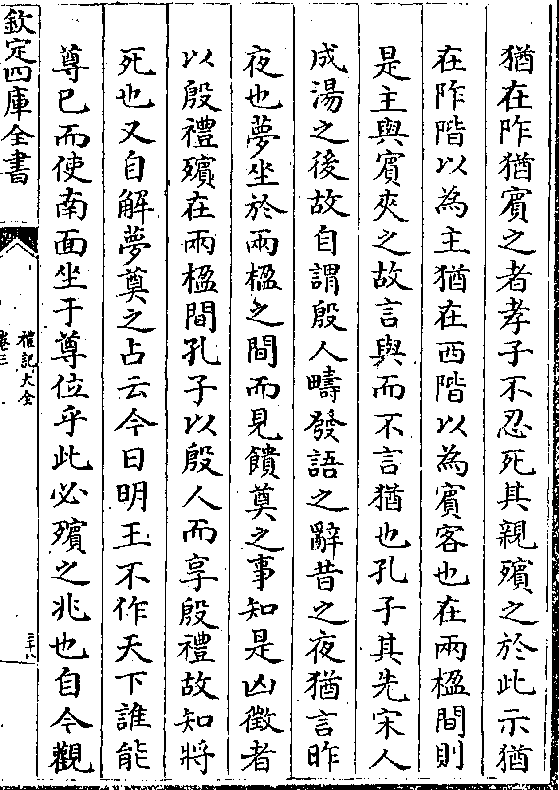 猶在阼猶賓之者孝子不忍死其親殯之於此示猶
在阼階以為主猶在西階以為賓客也在兩楹間則
是主與賓夾之故言與而不言猶也孔子其先宋人
成湯之後故自謂殷人疇發語之辭昔之夜猶言昨
夜也夢坐於兩楹之間而見饋奠之事知是凶徵者
以殷禮殯在兩楹間孔子以殷人而享殷禮故知將
死也又自解夢奠之占云今日明王不作天下誰能
尊已而使南面坐于尊位乎此必殯之兆也自今觀
欽定四庫全書
禮記大全
卷三
三十八